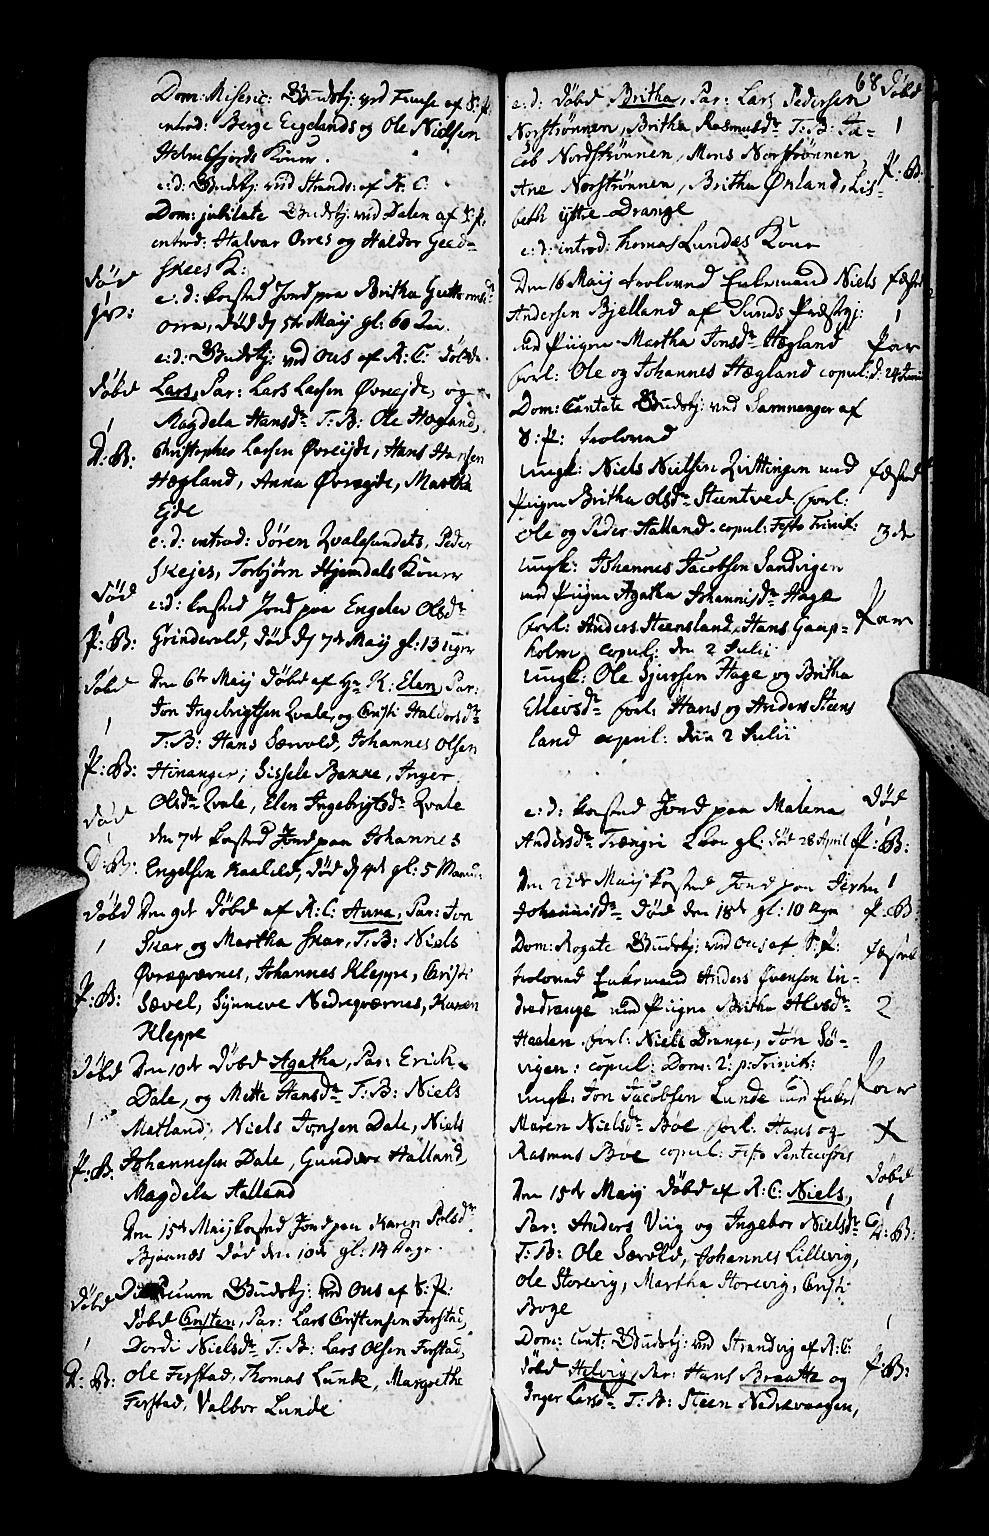 Dom: Miseric: Gudstj: ved Fuuse af S: P:
introd: Berge Eegelands og Ole Nielsen
Helmbfjords Koner.
e: d: Gudstj: ved Strands: af R: C:
Dom: jubilate Gudstj: ved Dalen af S: P:
introd: Halvar Orres og Haldor
Skees K:
død
e: d: kasted Jord paa Britha Guttormsdr
Orra, død d 5te Maij gl: 60 Aar.
e: d: Gudstj: ved Ous af R: C: døbt
døbd
Lars, Par: Lars Larsen Øvreijde, og
1
Magdela Hansdr T: B: Ole Hægland,
D: B:
Christopher Larsen Øvreijde, Hans Hansen
Hægland, Anna Øvreijde, Martha
Eijde
e: d: introd: Søren Qvalesundets, Peder
Skejes, Torbjørn Hjemdals Koner
død
e: d: kasted Jord paa Engelen Olsdr
1
P: B:
Grindevold, død d 7de Maij gl: 13 uger
døbd
Den 6te Maij døbd af Hr K: Elen, Par:
1
Jon Ingebrigtsen Qvale, og Cristi Haldorsdr
T: B: Hans Særvold, Johannes Olsen
P: B:
Hinanger, Sissele Bakke, Inger
Olsdr Qvale, Elen Ingebrigtsdr Qvale
død
den 7de kasted Jord paa Johannes
D: B:
Engelsen Kaalild, død d 4de gl: 5
døbd
Den 9de døbd af R: C: Anna, Par: Jon
1
Skar og Martha Skar, T: B: Niels
Øvreqværnes, Johannes Kleppe, Cristi
P: B:
Sævel, Synneve Nedreqværnes, Karen
Kleppe
døbd
Den 10de døbd Agatha, Par: Erich
Dale, og Mette Hansdr T: B: Niels
1
Matland, Niels Jonsen Dale, Niels
P: B:
Johannesen Dale, Gunder Halland,
Magdela Halland
Den 15de Maij kasted Jord paa Karen Polsdr
Bjønnæs død den 10de gl: 14 Dage.
døbd
Gudstj: ved Ous af S: P:
døbd Cristen, Par: Lars Cristensen Ferstad,
1
Dordi Nielsdr T: B: Lars Olsen Ferstad,
D: B:
Ole Ferstad, Thomas Lunde, Margrethe
Ferstad, Valbor Lunde
68
e: d: døbd Britha, Par: Lars Pedersen
døbd
Norstrønnen, Britha Rasmusdr T: B: Ja-
1
cob Nordstrønnen, Mons Norstrønnen,
P: B:
Ane Norstrønnen, Britha Ønland, Lis-
beth ijttre Drange
e: d: introd: Thomas Lundes Kone
Den 16 Maij trolovend Enkemand Niels
fæsted
Andersen Bjelland af Sunds Præstgj:
1
med Piigen Martha Jonsdr Hægland
Par
forl: Ole og Johannes Hægland copul: d: 24 Junii
Dom: Cantate Gudstj: ved Samnanger af
S: P: trolovend
ungk: Niels Nielsen Qvittingen med
fæsted
Piigen Britha Olsdr Steentved. forl:
Ole og Peder Halland. copul: Festo Trinit:
3 de
ungk: Johannes Jacobsen Sandvigen
med Piigen Agatha Johannisdr Hage
Par
forl: Anders Steensland, Hans Gaup-
holm, copul: den 2 Julii
ungk: Ole Sjursen Hage og Britha
Ellevsdr forl: Hans og Anders Steens
land copul: den 2 Julii
e: d: kasted Jord paa Malena
død
1
Andersdr Trængri gl: død 28 April
P: B:
Den 22de Maij kasted Jord paa
1
Johannisdr død den 18de gl: 10 Uger
P: B:
Dom: Rogate Gudstj: ved Ous af S: P:
fæsted
trolovend Enkemand Anders Qvensen in-
2
dredrange med Piigen Britha Alvsdr
Haalen forl: Niels Drange, Jon Sø-
Par
vigen: copul: Dom: 2: p: Trinit:
ungk: Jon Jacobsen Lunde med Enken
Maren Nielsdr Boe forl: Hans og
X
Rasmus Boe copul: Festo Pentecostes
døbd
Den 15de Maij døbd af R: C: Niels,
1
Par: Anders Viig og Ingebor Nielsdr
D: B:
T: B: Ole Særvold, Johannes Lillevig,
Ole Storevig, Martha Storevig, Cristi
Boge
Dom: Cant: Gudstj: ved Strandvig af R: C:
1
døbd Helvig, Par: Hans Braatte og
P: B:
Inger Larsdr T: B: Steen Nedrevaagen,